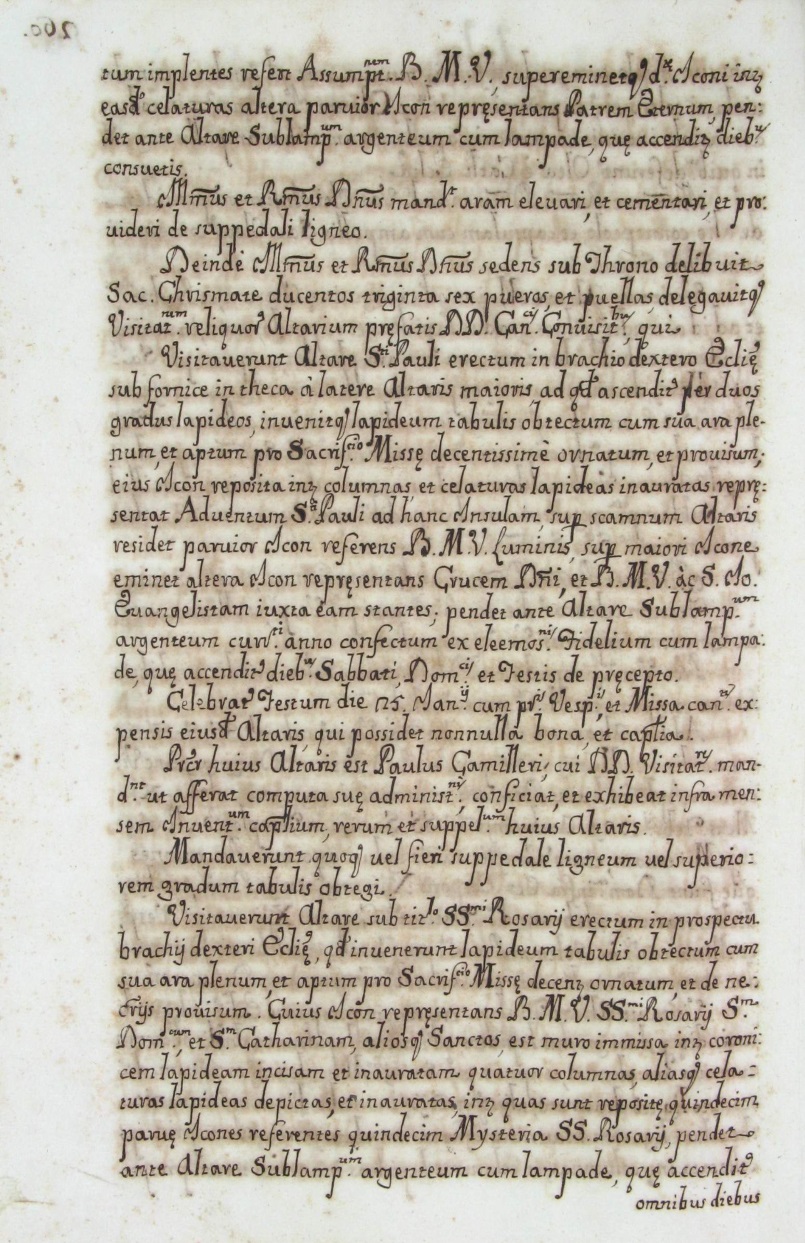 260.
tum implentes refert Assumpt.num B. M. V. supereminetq; d.æ Iconi intꝫ
easd.o celaturas altera paruior Icon repręsentans Patrem Æternum, pen:
det ante Altare Sublamp.um argenteum cum lampade, quę accenditꝫ dieb.9
consuetis.
Illm̃us et Rm̃us Dñus mand.t aram eleuari, et cementari, et pro:
uideri de suppedali ligneo.
Deinde Illm̃us et Rm̃us Dñus sedens sub Throno delibuit
Sac. Chrismate ducentos triginta sex pueros, et puellas, delegauitq;
Visitat.num reliquor Altarium pręfatis DD. Can.cis Conuisit.bus, qui
Visitauerunt Altare S.ti Pauli erectum in brachio dextero Ecclię
sub fornice in theca à latere Altaris maioris, ad qd ascenditr per duos
gradus lapideos, inuenitq; lapideum tabulis obtectum cum sua ara ple-
num, et aptum pro Sacrif.cio Missę decentissimè ornatum, et prouisum,
eius Icon reposita intꝫ columnas, et celaturas lapideas inauratas reprę:
sentat Aduentum S.ti Pauli ad hanc Insulam, sup scamnum Altaris
residet paruior Icon referens B. M. V. Luminis, sup maiori Icone
eminet altera Icon repręsentans Crucem Dñi, et B. M. V. àc S. Io:
Euangelistam iuxta eam stantes, pendet ante Altare Sublamp.um
argenteum curr.ti anno confectum ex eleemos.nis Fidelium cum lampa:
de, quę accenditr dieb.9 Sabbati, Dom.cis et Festis de pręcepto.
Celebratr Festum die 25. Ian.ij cum pr.is Vesp.is, et Missa can.ta ex:
pensis eiusd Altaris, qui possidet nonnulla bona, et capłia.
Prcr huius Altaris est Paulus Camilleri, cui DD. Visitat.res man-
d.nt ut afferat computa suę administ.nis, conficiat, et exhibeat infra men:
sem Inuent.um capłium, rerum et suppel.um huius Altaris.
Mandauerunt quoq; uel fieri suppedale ligneum uel superio:
rem gradum tabulis obtegi.
Visitauerunt Altare sub tit.lo SS.mi Rosarij erectum in prospectu
brachij dexteri Ecclię, qd inuenerunt lapideum tabulis obtectum cum
sua ara plenum, et aptum pro Sacrif.cio Missę decentꝫ ornatum, et de ne:
crijs prouisum. Cuius Icon repręsentans B. M. V. SS.mi Rosarij S.m
Dom.cum, et S.m Catharinam, aliosq; Sanctos, est muro immissa intꝫ coroni:
cem lapideam incisam et inauratam, quatuor columnas, aliasq; cela:
turas lapideas depictas, et inauratas, intꝫ quas sunt repositę quindecim
paruę Icones referentes quindecim Mysteria SS. Rosarij, pendet
ante Altare Sublamp.um argenteum cum lampade, quę accenditr
omnibus diebus